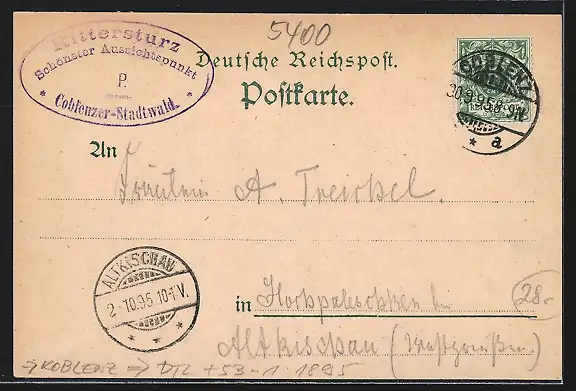 5400
Rittersturz
Schönster Aussichtspunkt
P.
* Coblenzer-Stadtwald. *
Deutsche Reichspost.
Postkarte.
COBLENZ
30.9.95. 8-9N
* a
An
Fräulein A. Treichel.
ALTKISCHAU
2.10.95.10-1V.
* * *
in Hochpaleschken bei
28.-
Altkischau (Westpreußen)
→ KOBLENZ → DTL +53-1-1895